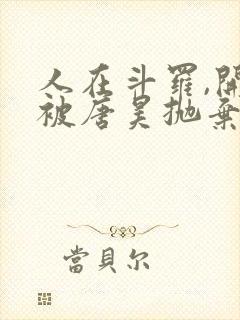 人在斗羅,開
被唐昊拋棄
當貝尔